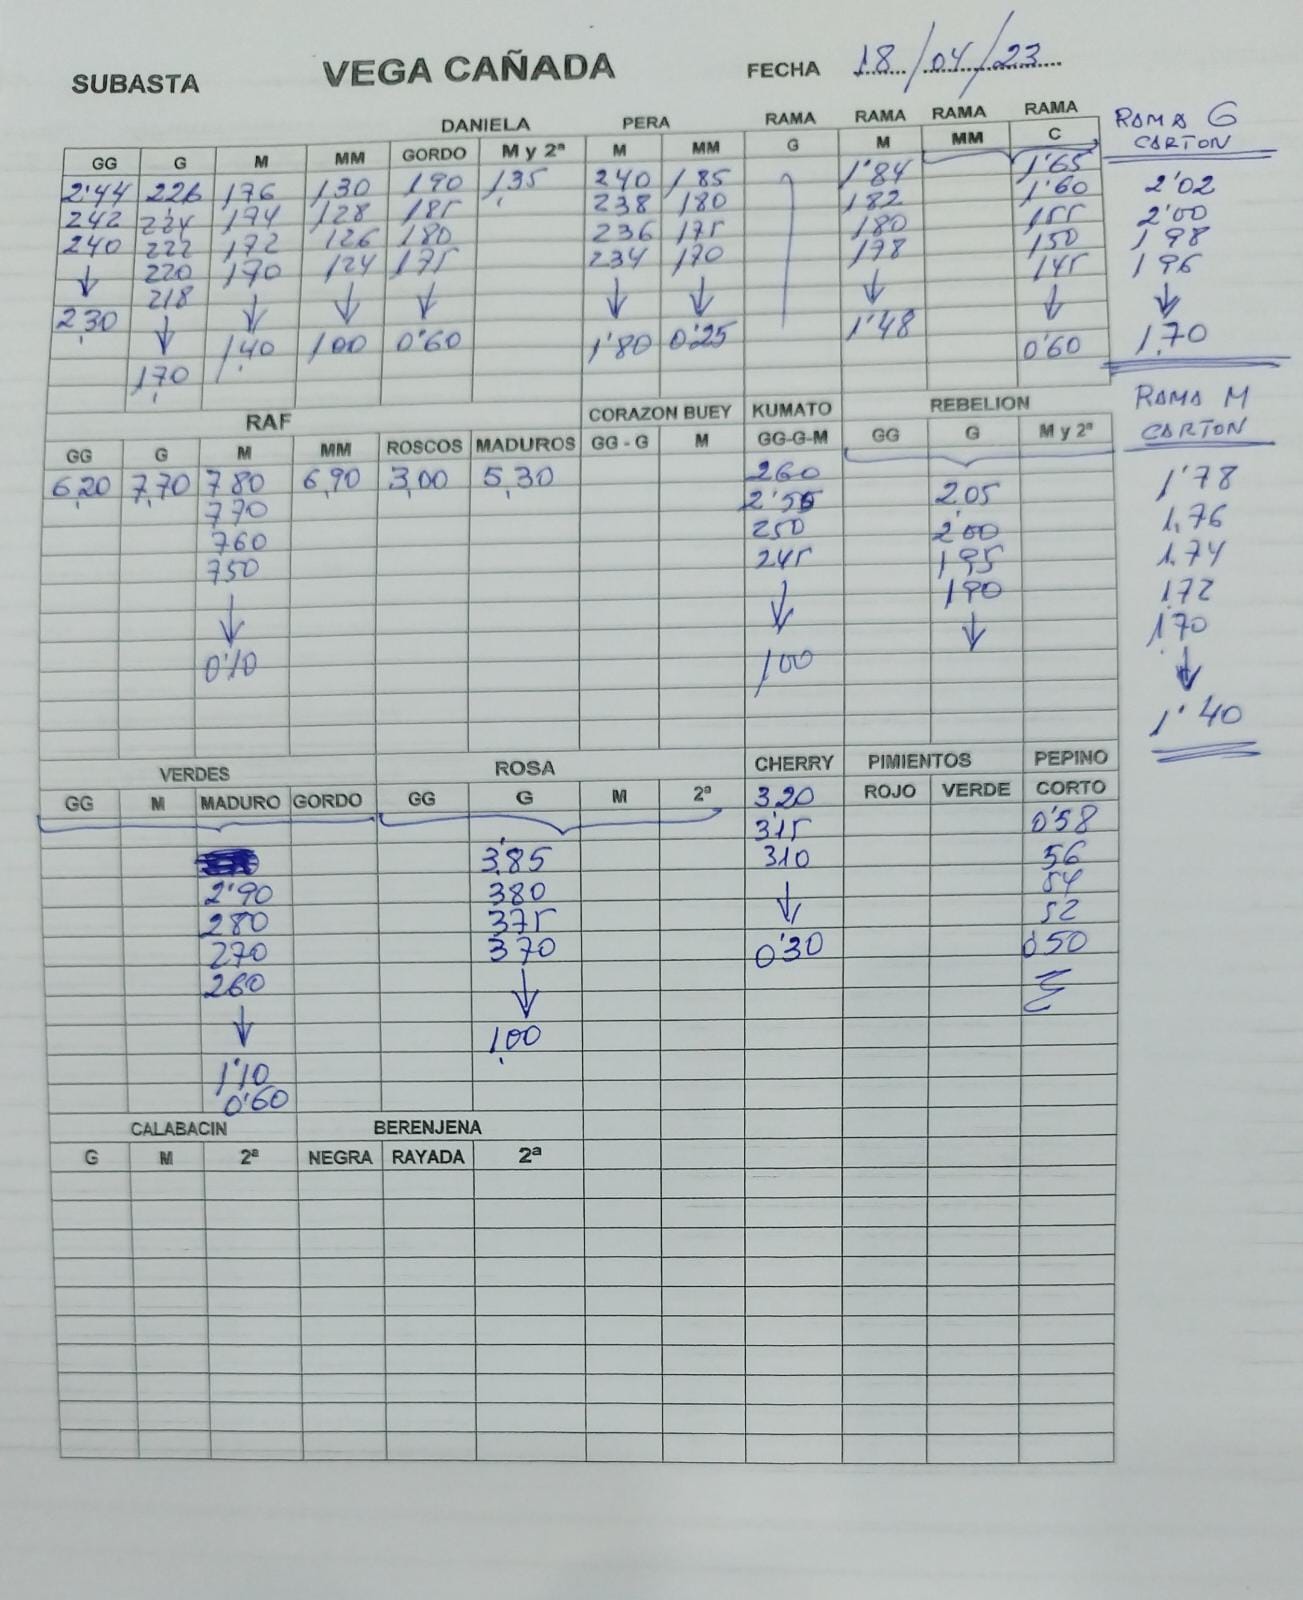 SUBASTA VEGA CAÑADA FECHA 18/04/23
DANIELA PERA RAMA RAMA RAMA RAMA RAMA G
GG G M MM GORDO M y 2ª M MM G M MM C CARTON
2'44 226 176 1,30 1,90 1,35 240 1,85 1'84 1'65 2'02
242 224 174 128 185 238 180 182 1'60 2'00
240 222 172 126 180 236 175 180 155 1 98
220 170 124 175 234 170 178 150 1 96
218 145
2,30 1,40 1,00 0'60 1'80 0'25 1'48 0'60 1,70
1,70
RAF CORAZON BUEY KUMATO REBELION RAMA M
GG G M MM ROSCOS MADUROS GG - G M GG-G-M GG G M y 2ª CARTON
6,20 7,70 7 80 6,90 3,00 5,30 260 1'78
770 2'55 2,05 1,76
760 250 2'00 1,74
750 245 1,95 1,72
190 1,70
0'10 1,00 1'40
VERDES ROSA CHERRY PIMIENTOS PEPINO
GG M MADURO GORDO GG G M 2ª 3,20 ROJO VERDE CORTO
3'15 0'58
3,85 310 56
2'90 380 54
280 375 52
270 3 70 0'30 0'50
260
1,00
1'10
0'60
CALABACIN BERENJENA
G M 2ª NEGRA RAYADA 2ª